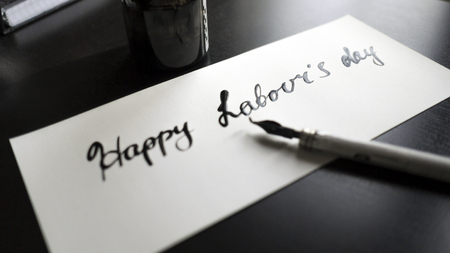 Happy Labour's day